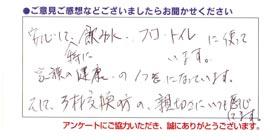 ●ご意見ご感想などございましたらお聞かせください
安心して、飲み水、フロ・トイレに使って
特に います。
家族の健康の1つをになっています。
そして、お親切にいつも感心
してます。
アンケートにご協力いただき、誠にありがとうございます。